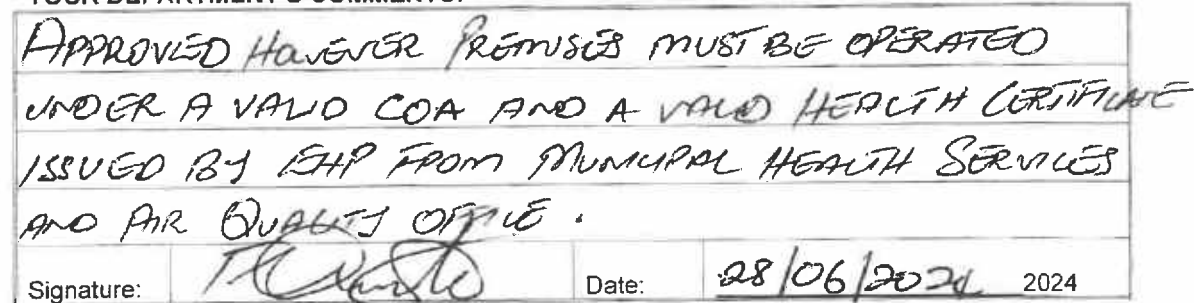 YOUR DEPARTMENT'S COMMENTS:
APPROVED HOWEVER PREMISES MUST BE OPERATED
UNDER A VALID COA AND A VALID HEALTH CERTIFICATE
ISSUED BY EHP FROM MUNICIPAL HEALTH SERVICES
AND AIR QUALITY OFFICE.
Signature: Date: 28/06/2024 2024